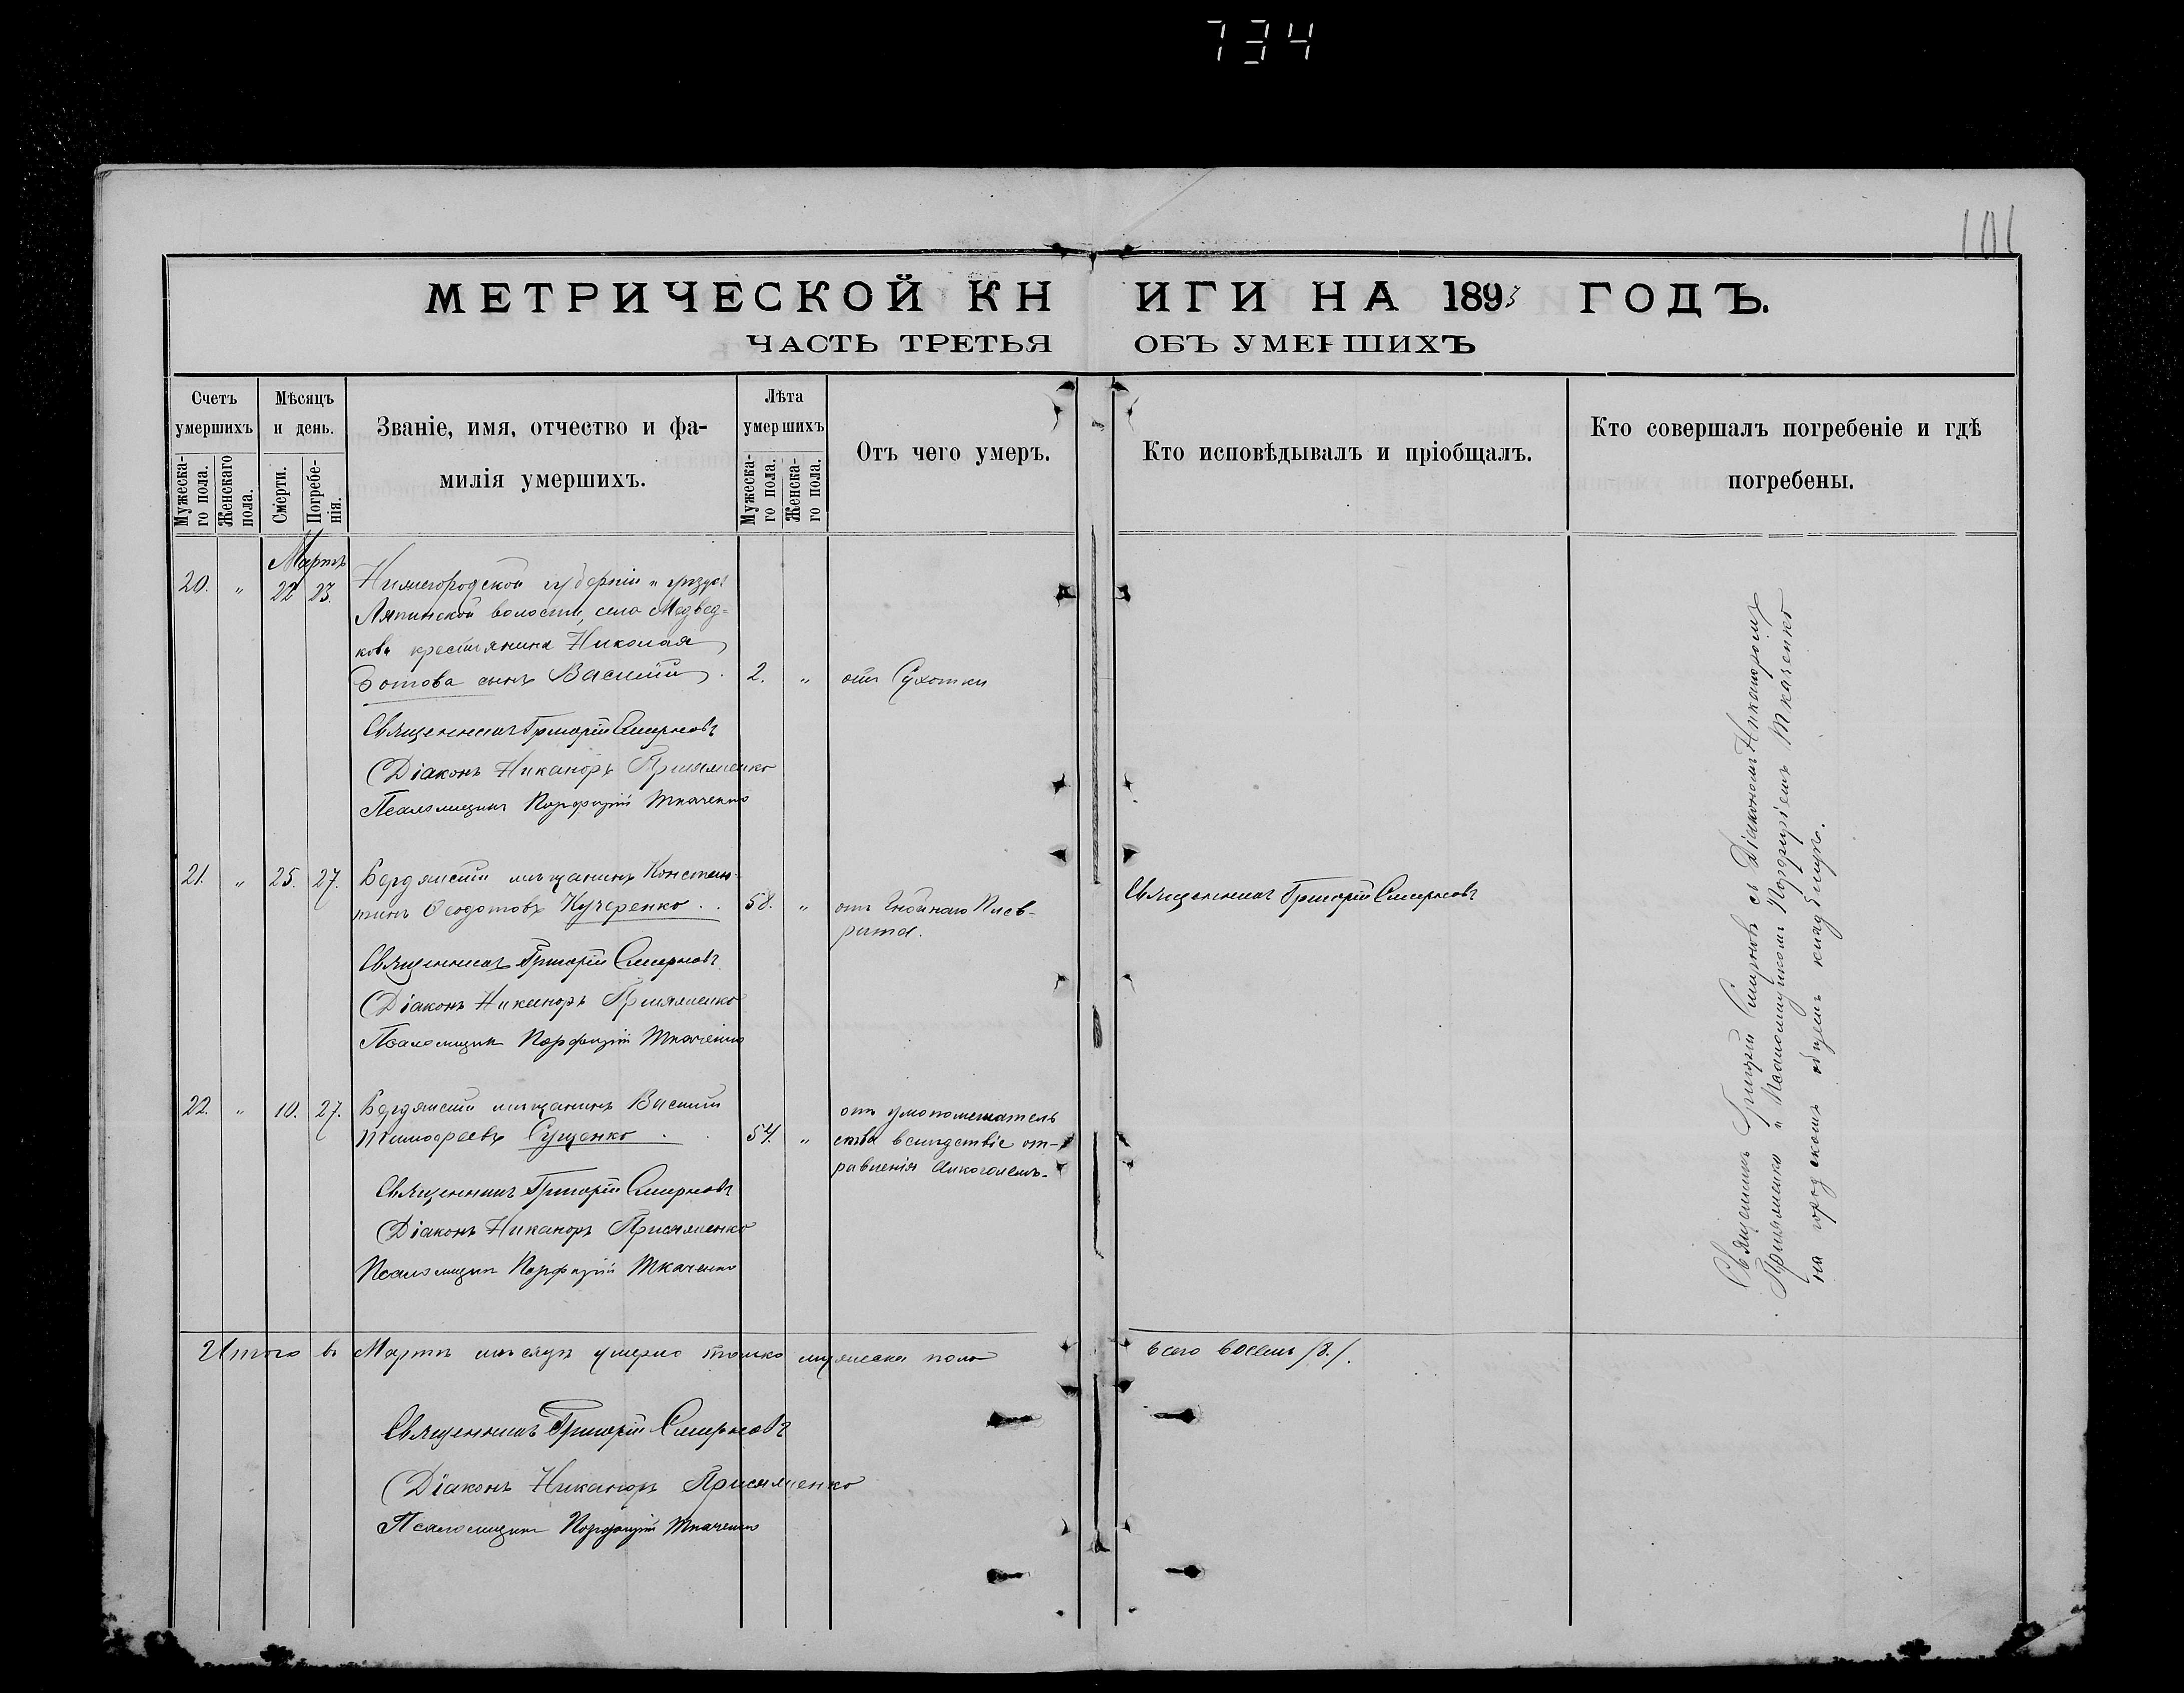 734
101
МЕТРИЧЕСКОЙ КНИГИ НА 1893 ГОДЪ.
ЧАСТЬ ТРЕТЬЯ ОБЪ УМЕРШИХЪ
Счетъ умершихъ
Мужеска-
го пола.
Женскаго
пола.
Мѣсяцъ
и день.
Смерти.
Погребе-
нія.
Званіе, имя, отчество и фа-
милія умершихъ.
Лѣта
умершихъ
Мужеска-
го пола.
Женска-
го пола.
Отъ чего умеръ.
Кто исповѣдывалъ и пріобщалъ.
Кто совершалъ погребеніе и гдѣ
погребены.
Мартъ
20. " 22 23. Нижегородской губерніи и уѣзда
волости, села Медвед-
кова крестьянина Николая
сынъ Василій. 2. " отъ Сухотки
Священникъ Григорій Смирновъ
Діаконъ Никаноръ Присяженко
Псаломщикъ Порфирій Ткаченко
21. " 25. 27. Бердянскій мѣщанинъ Констан-
тинъ Ѳеодотовъ Кучеренко . . 58. " отъ Гнойнаго Плев-
рита.
Священникъ Григорій Смирновъ
Священникъ Григорій Смирновъ
Діаконъ Никаноръ Присяженко
Псаломщикъ Порфирій Ткаченко
22. " 10. 27. Бердянскій мѣщанинъ Василій
Тимофеевъ Сущенко . . 54. "
отъ умопомешатель
ства вслѣдствіе от-
равленія Алкоголемъ.
Священникъ Григорій Смирновъ
Діаконъ Никаноръ Присяженко
Псаломщикъ Порфирій Ткаченко
Священникъ Григорій Смирновъ съ Діакономъ Никаноромъ
Присяженко и Псаломщикомъ Порфиріемъ Ткаченко
на городскомъ общемъ кладбищѣ.
Итого въ Мартѣ мѣсяцѣ умерло только мужеска пола всего восемь /8./.
Священникъ Григорій Смирновъ
Діаконъ Никаноръ Присяженко
Псаломщикъ Порфирій Ткаченко